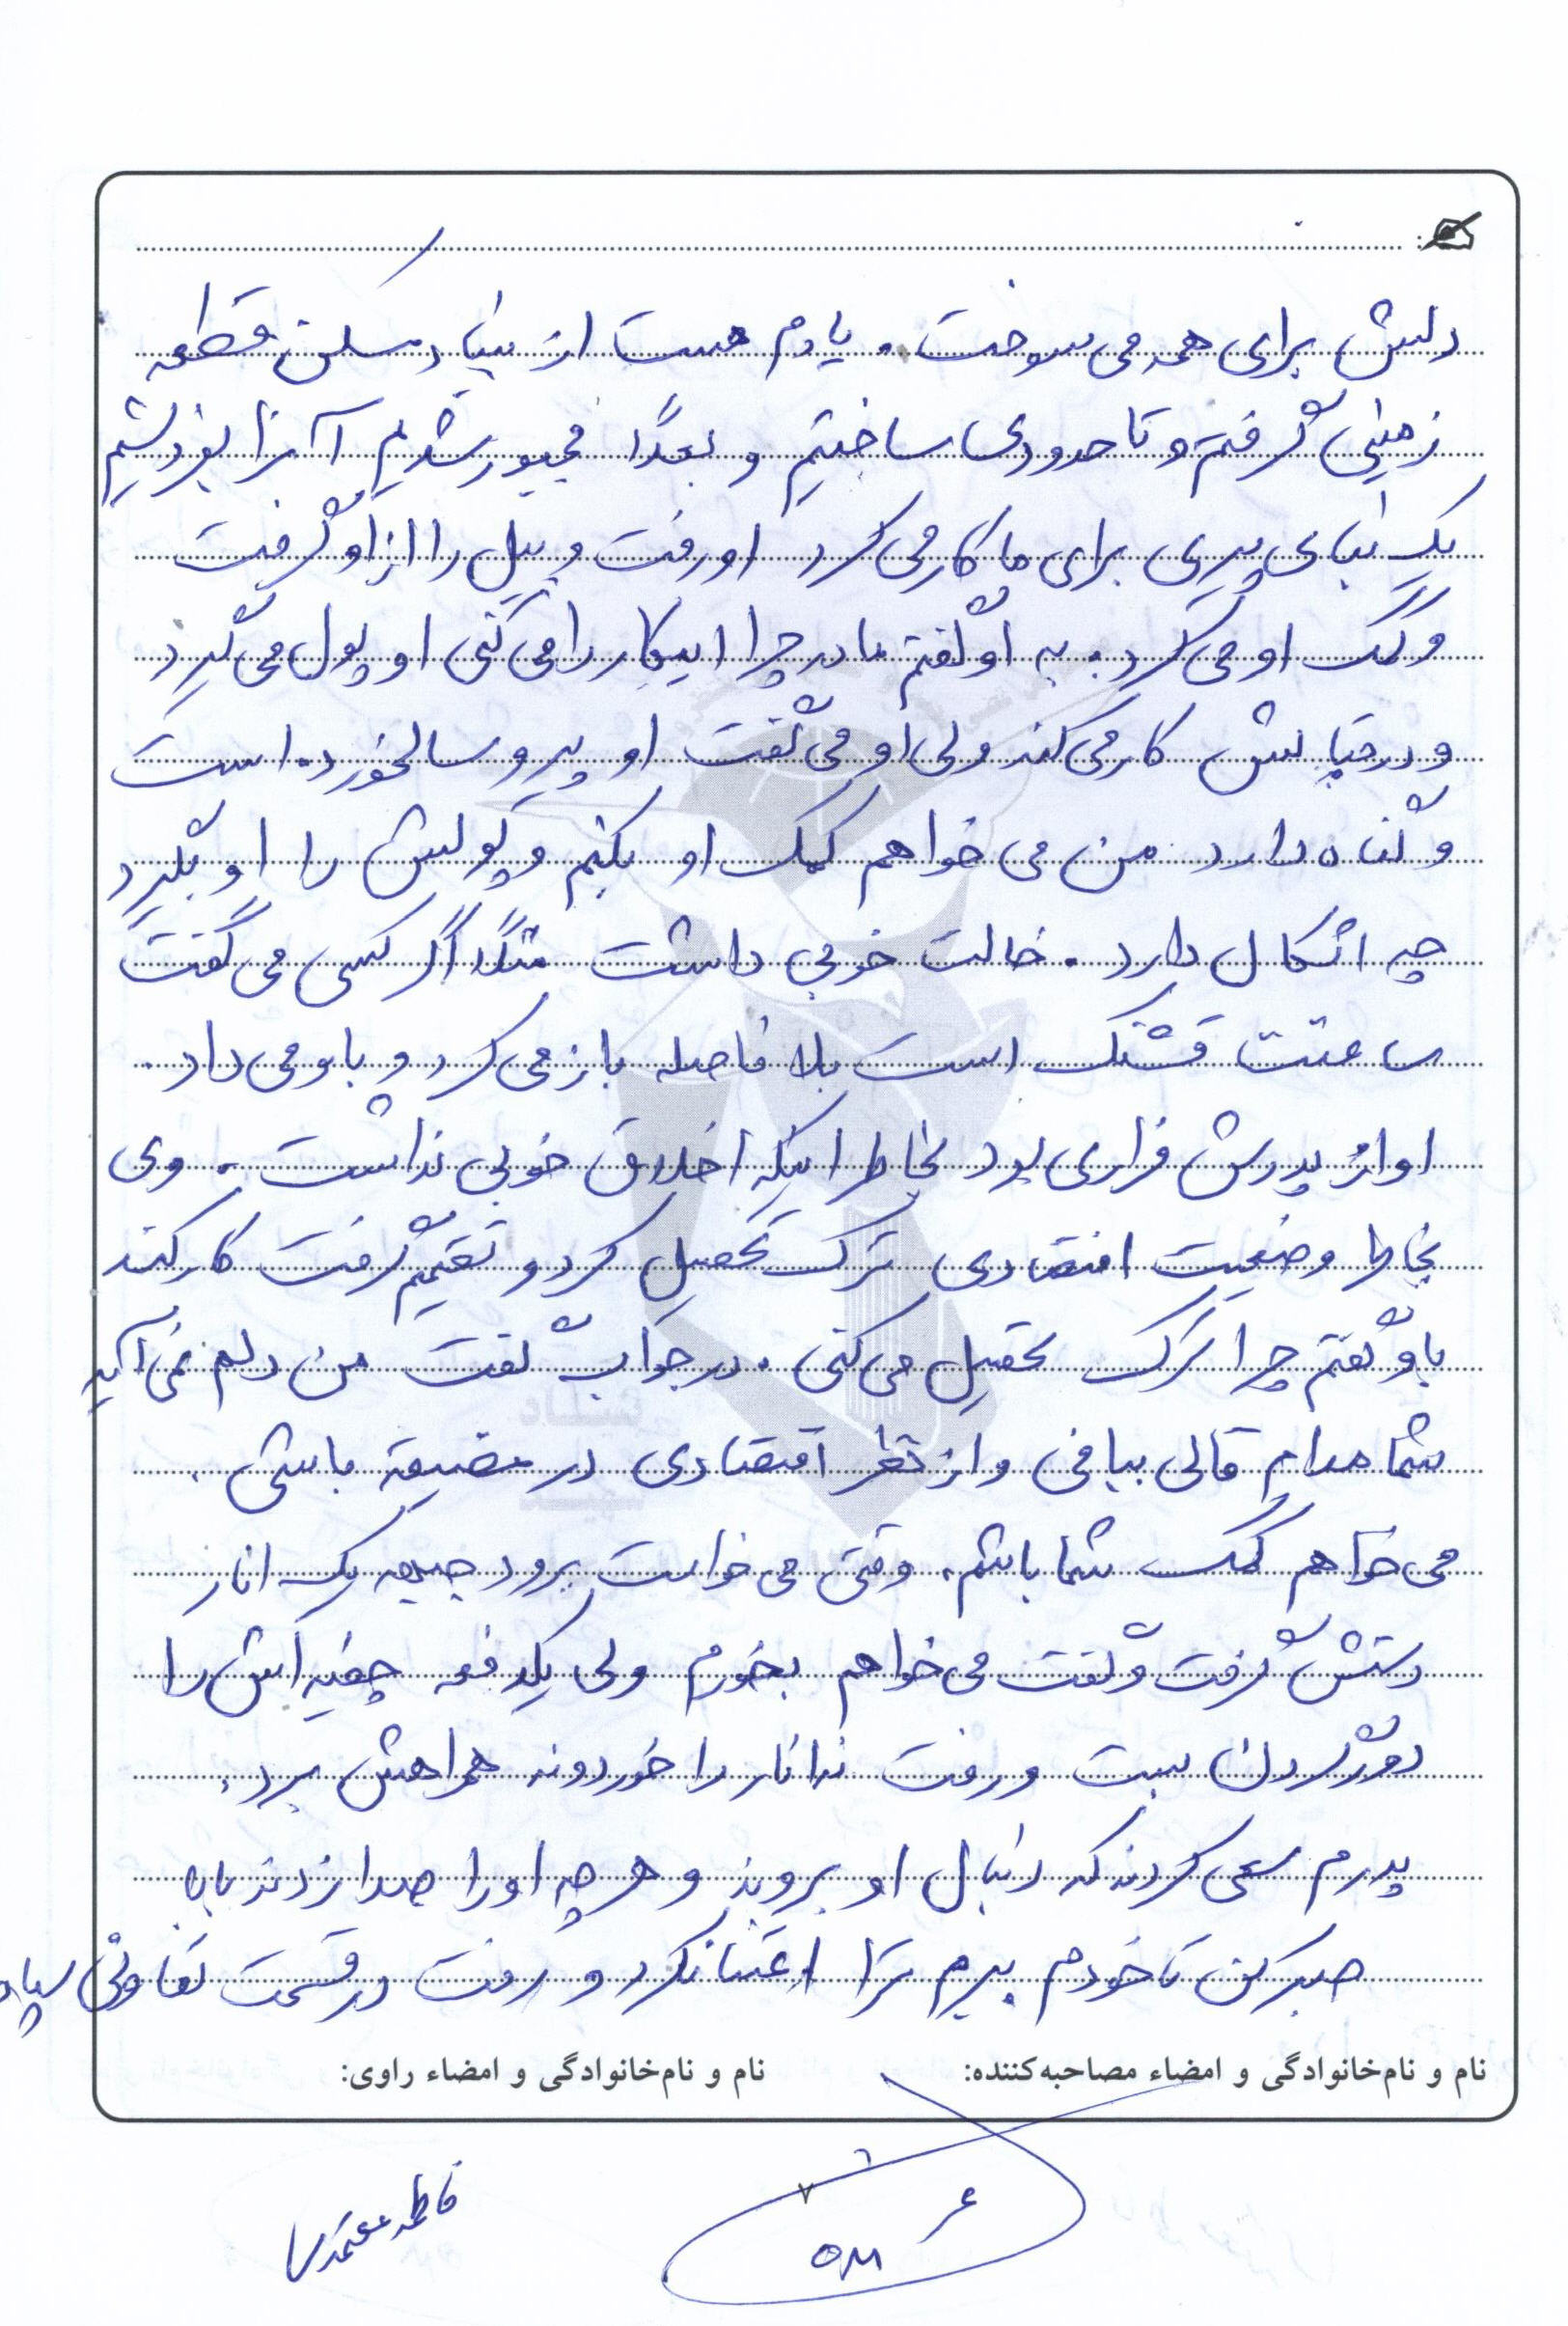 دلش برای همه می سوخت. یادم هست از بنیاد مسکن قطعه
زمینی گرفتم و تا حدودی ساختیم و بعداً مجبور شدیم آنرا بفروشیم
یک بنای پیری برای ما کار می کرد او رفت و بیل را از او گرفت
و کمک او می کرد. به او گفتم مادر چرا اینکار را می کنی او پول می گیرد
و در قبالش کار می کند ولی او می گفت او پیر و سالخورده است
و گناه دارد من می خواهم کمک او بکنم و پولش را او بگیرد
چه اشکال دارد. حالت خوبی داشت مثلاً اگر کسی می گفت
ساعتت قشنگ است بلا فاصله باز می کرد و باو می داد.
او از پدرش فراری بود بخاطر اینکه اخلاق خوبی نداشت. وی
بخاطر وضعیت اقتصادی ترک تحصیل کرد و تصمیم گرفت کار کند
باو گفتم چرا ترک تحصیل می کنی. در جواب گفت من دلم نمی آید
شما مدام قالی ببافی و از نظر اقتصادی در مضیقه باشی.
می خواهم کمک شما باشم. وقتی می خواست برود جبهه یک انار
دستش گرفت و گفت می خواهم بخورم ولی یکدفعه چفیه اش را
دور گردن بست و رفت نه انار را خورد و نه همراهش برد.
پدرم سعی کردند که دنبال او بروند و هر چه او را صدا زدند بابا
صبر کن تا خودم ببرم ترا اعتنا نکرد و رفت در قسمت تعاونی سپاه
نام و نام‌خانوادگی و امضاء مصاحبه‌کننده:
نام و نام‌خانوادگی و امضاء راوی:
۷
فاطمه